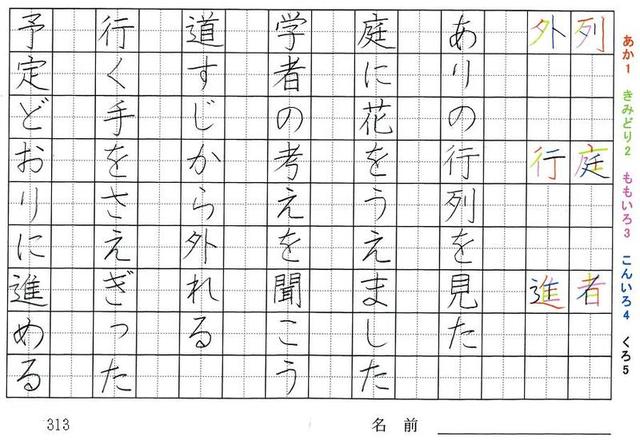 あか1 きみどり2 ももいろ3 こんいろ4 くろ5
列 庭 者
外 行 進
ありの行列を見た
庭に花をうえました
学者の考えを聞こう
道すじから外れる
行く手をさえぎった
予定どおりに進める
313
名前